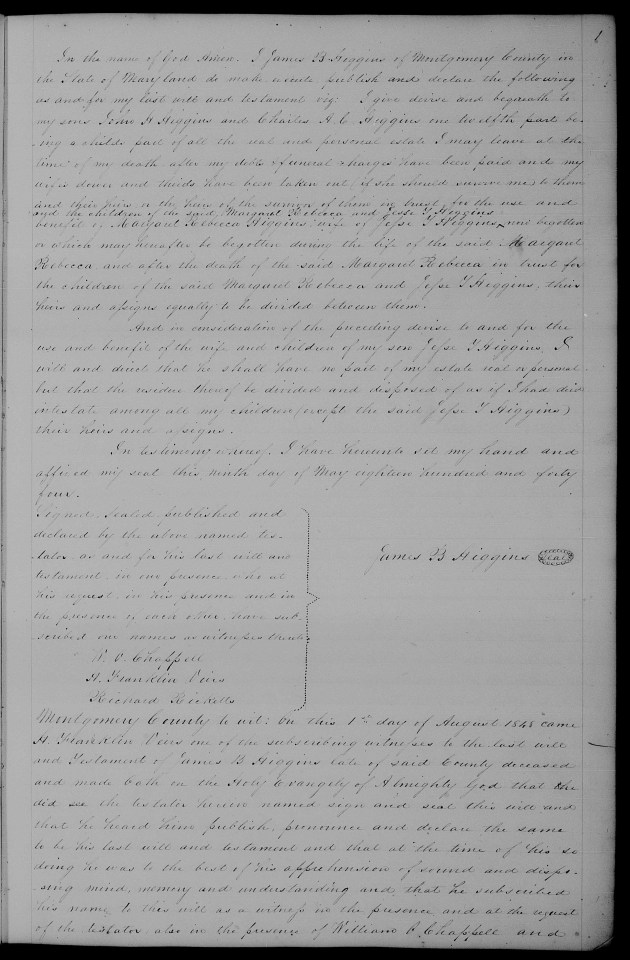 1
In the name of God Amen. I James B Higgins of Montgomery County in
the State of Maryland do make execute, publish and declare the following
as and for my last will and testament viz: I give devise and bequeath to
my sons John H Higgins and Charles A. C. Higgins one twelfth part be-
ing a childs part of all the real and personal estate I may leave at the
time of my death after my debts & funeral charges have been paid and my
wifes dower and thirds have been taken out, if she should survive me, to them
and their heirs, or the heirs of the survivor of them in trust, for the use and
and the children of the said, Margaret Rebecca and Jesse T Higgins
benefit of Margaret Rebecca Higgins, wife of Jesse T Higgins now begotten
or which may hereafter be begotten during the life of the said Margaret
Rebecca and after the death of the said Margaret Rebecca in trust for
the children of the said Margaret Rebecca and Jesse T Higgins, their
heirs and assigns equally to be divided between them.
And in consideration of the preceding devise to and for the
use and benefit of the wife and children of my son Jesse T Higgins, I
will and direct that he shall have no part of my estate real or personal
but that the residue thereof be divided and disposed of as if I had died
intestate among all my children (except the said Jesse T Higgins)
their heirs and assigns.
In testimony whereof, I have hereunto set my hand and
affixed my seal this ninth day of May eighteen hundred and forty
four.
Signed, sealed published and
declared by the above named tes-
tator, as and for his last will and
testament, in our presence, who at
his request, in his presence and in
the presence of each other, have sub-
scribed our names as witnesses thereto
James B Higgins (Seal)
Chappell
H. Franklin Viers
Richard Ricketts
Montgomery County to wit: On this 1st day of August 1848 came
H. Franklin Viers one of the subscribing witnesses to the last will
and Testament of James B Higgins late of said County deceased
and made Oath on the Holy Evangely of Almighty God that he
did see the testator herein named sign and seal this will and
that he heard him publish, pronounce and declare the same
to be his last will and testament and that at the time of his so
doing he was to the best of his apprehension of sound and dispo-
sing mind, memory and understanding and that he subscribed
his name to this will as a witness in the presence and at the request
of the testator, also in the presence of William Chappell and